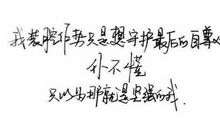 我装腔作势只是想守护最后的自尊心
你不懂
只以为那就是坚强的我.